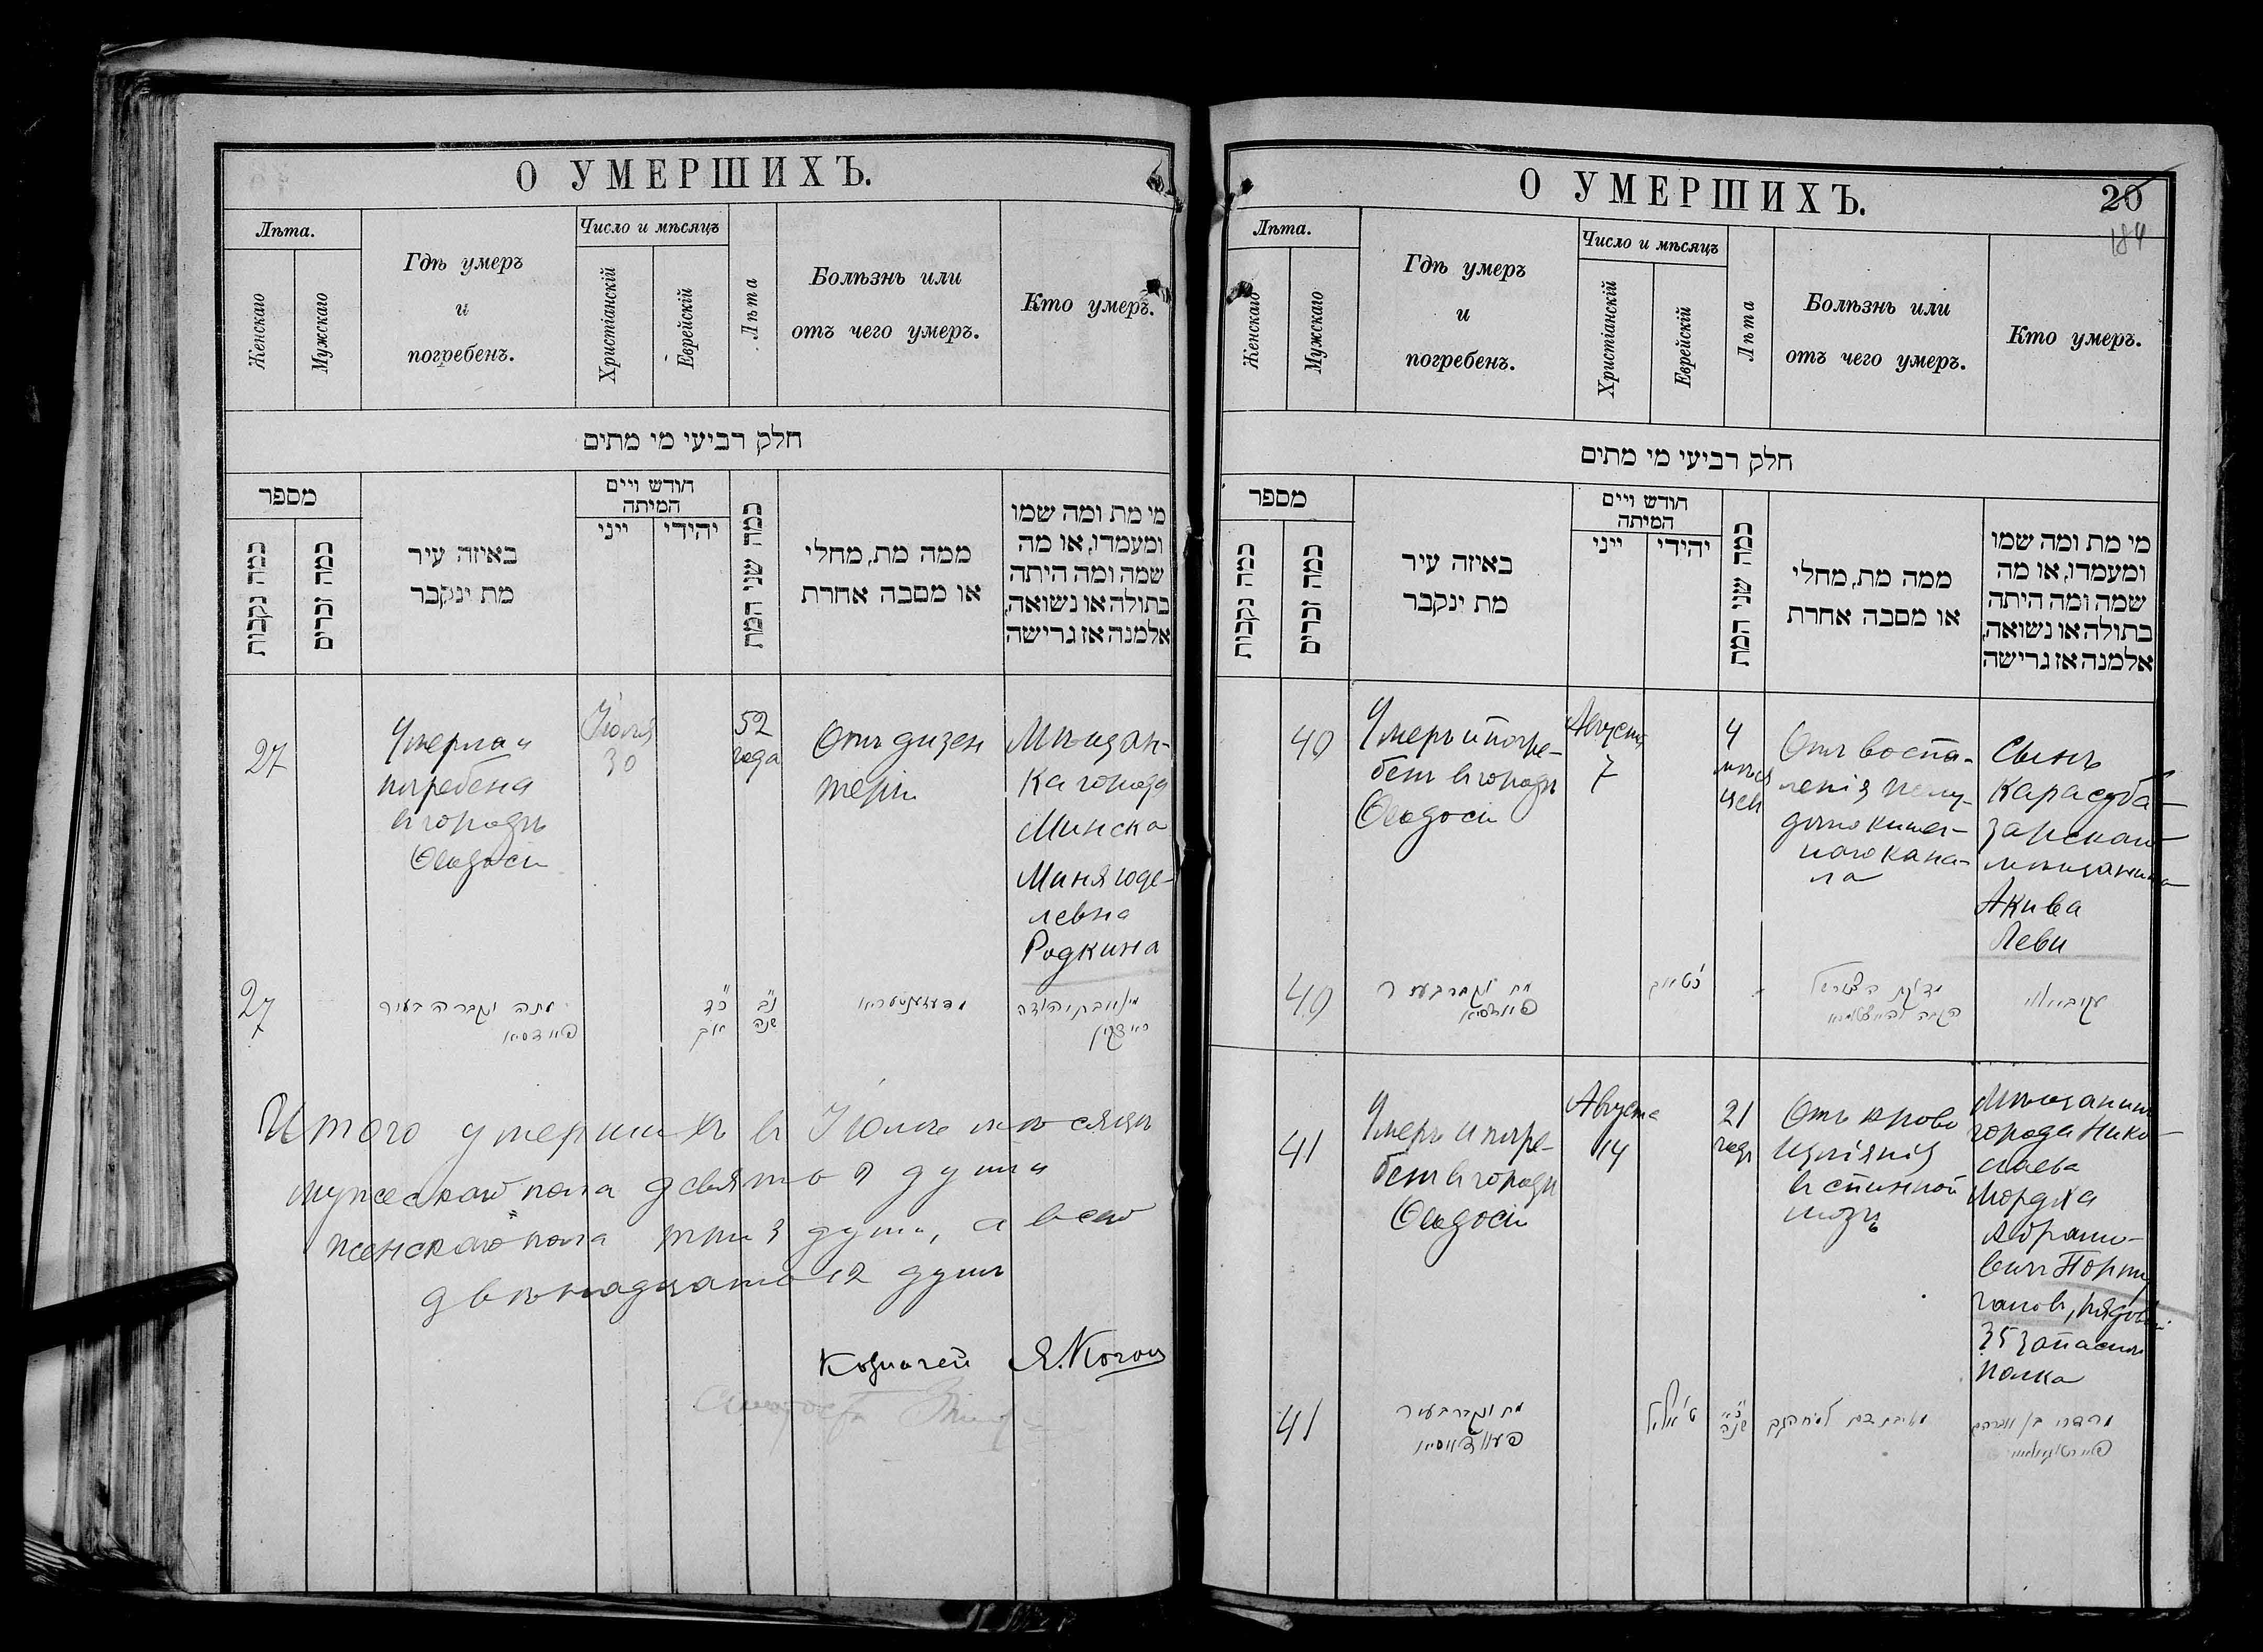 О УМЕРШИХЪ.
Лѣта.
Женскаго
Мужскаго
Гдѣ умеръ
и
погребенъ.
Число и мѣсяцъ
Христіанскій
Еврейскій
Лѣта
Болѣзнь или
отъ чего умеръ.
Кто умеръ.
חלק רביעי מי מתים
מספר
כמה נקבות
כמה זכרים
באיזה עיר
מת ינקבר
חודש ויים
המיתה
ייני
יהידי
כמה שני המת
ממה מת, מחלי
או מסבה אחרת
מי מת ומה שמו
ומעמדו, או מה
שמה ומה היתה
בתולה או נשואה,
אלמנה אז גרישה
27
Умерла и
погребена
въ городѣ
Ѳеодосіи
Іюля
30
52
года
Отъ дизен
теріи
Мѣщан-
ка города
Минска
Миня Юде-
левна
Родкина
27
מתה ונקברה בעיר
פיאדסיא
כ"ד
אב
נ"ב
שנה
בת יהודה
Итого умершихъ въ Іюлѣ мѣсяцѣ
мужескаго пола девять 9 душъ
женскаго пола три 3 души, а всего
двѣнадцать 12 душъ
Казначей Я. Коган
О УМЕРШИХЪ.
20
184
Лѣта.
Женскаго
Мужскаго
Гдѣ умеръ
и
погребенъ.
Число и мѣсяцъ
Христіанскій
Еврейскій
Лѣта
Болѣзнь или
отъ чего умеръ.
Кто умеръ.
חלק רביעי מי מתים
מספר
כמה נקבות
כמה זכרים
באיזה עיר
מת ינקבר
חודש ויים
המיתה
ייני
יהידי
כמה שני המת
ממה מת, מחלי
או מסבה אחרת
מי מת ומה שמו
ומעמדו, או מה
שמה ומה היתה
בתולה או נשואה,
אלמנה אז גרישה
40
Умеръ и погре-
бенъ въ городѣ
Ѳеодосіи
Августа
7
4
мѣся
цев
Отъ воспа-
ленія желу-
дочнокишеч-
наго кана-
ла
Сынъ
Карасуба-
зарскаго
мѣщанина
Акива
Леви
40
מת ונקבר בעיר
פיאדסיא
41
Умеръ и погре-
бенъ въ городѣ
Ѳеодосіи
Августа
14
21
годъ
Отъ крово
изліянія
въ спинной
мозгъ
Мѣщанинъ
города Нико-
лаева
Мордха
Абрамо-
вичъ Порту
галовъ, рядовой
35 запасного
полка
41
מת ונקבר בעיר
ט' אלול
כ"א
שנה
מרדכי בן אברהם